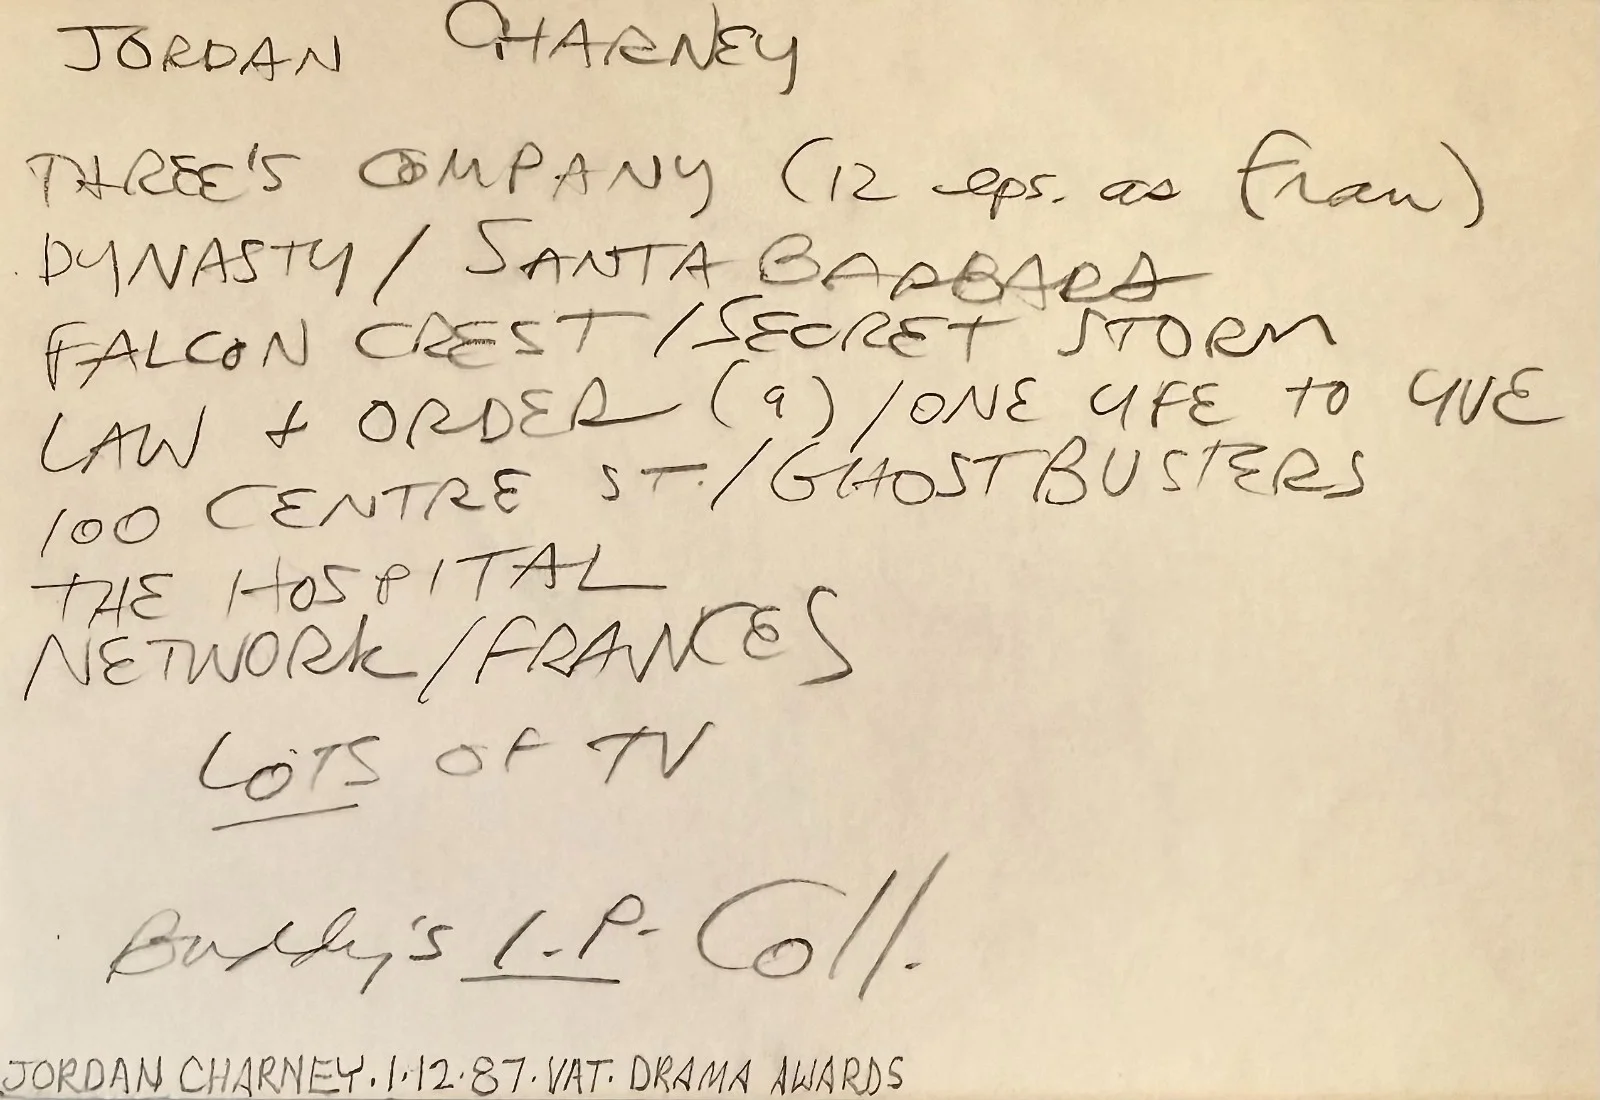 JORDAN CHARNEY
THREE'S COMPANY (12 eps. as Fran)
DYNASTY / SANTA BARBARA
FALCON CREST / SECRET STORM
LAW & ORDER (9) / ONE LIFE TO LIVE
100 CENTRE ST. / GHOSTBUSTERS
THE HOSPITAL
NETWORK / FRANCES
LOTS OF TV
Buddy's I.P. Coll.
JORDAN CHARNEY. 1.12.87. VAT. DRAMA AWARDS